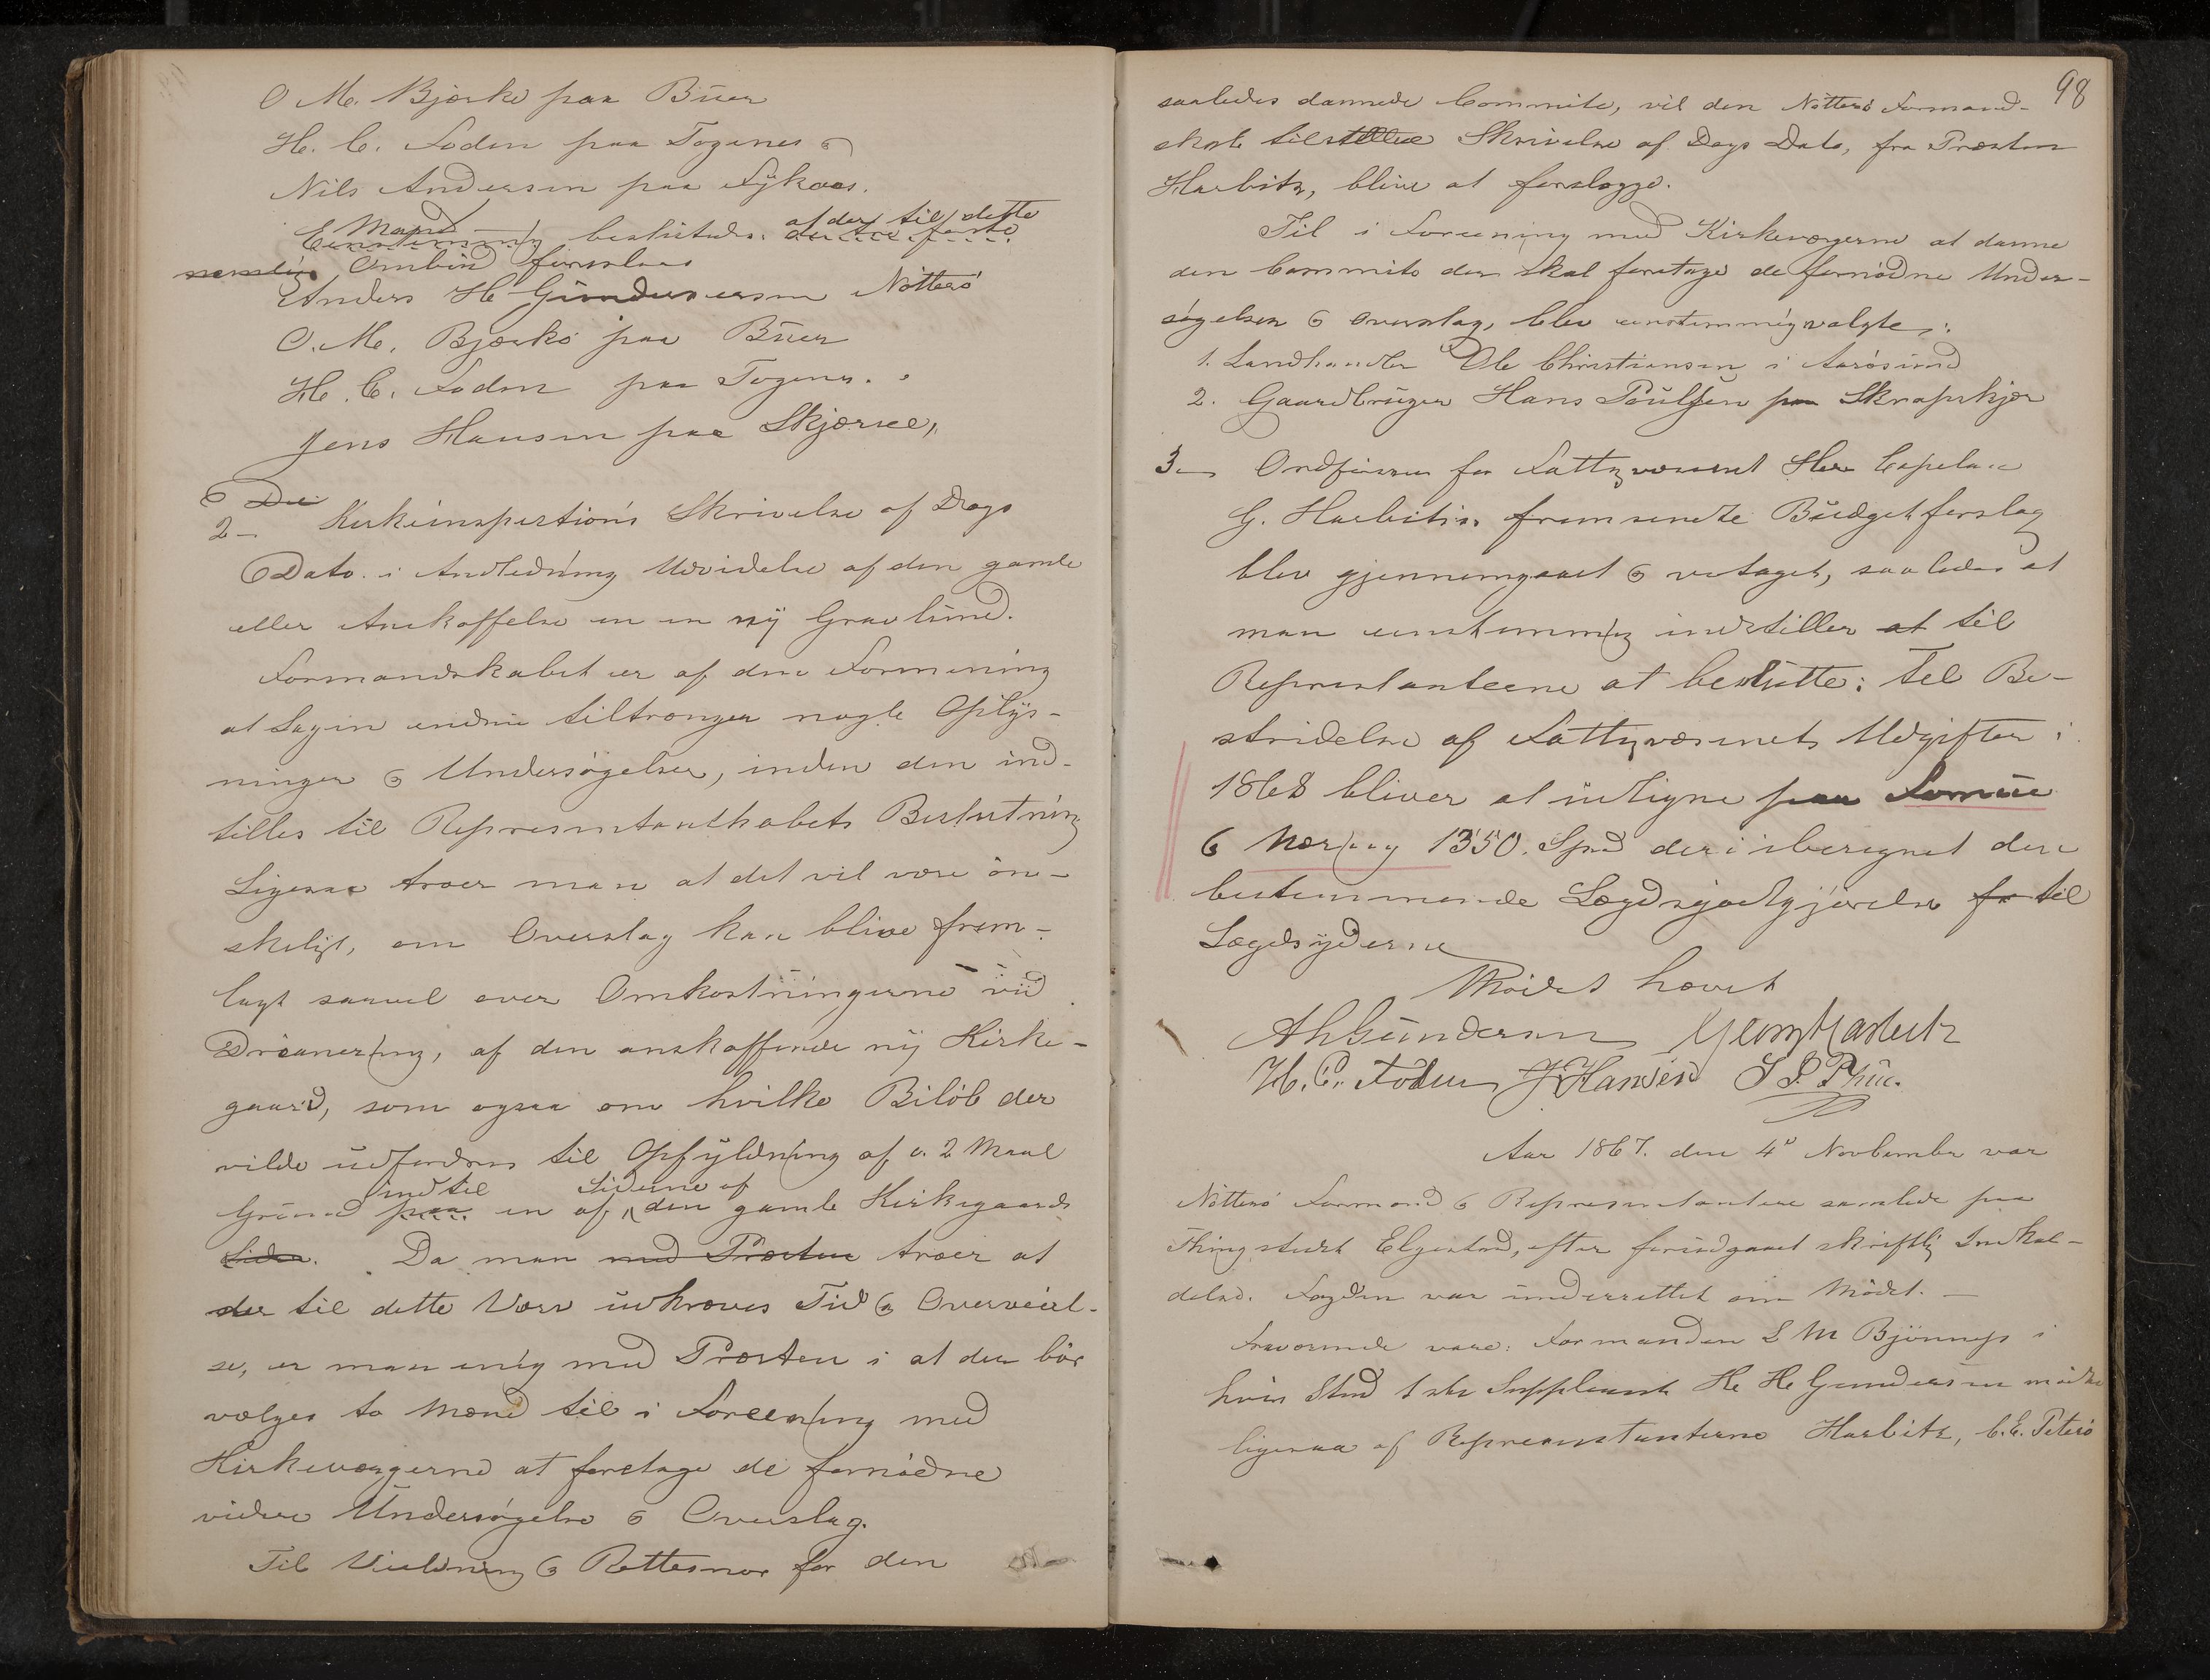 O M. Bjerke paa Buer
H. C. Foden paa Togenes
Nils Andersen paa Sykaas.
Mand at der til dette
Eenstemmig besluttedes: de tre første
nemlig Ombud foreslaaes
Anders H Gundersen Nøtterö
O. M. Bjerke paa Buer
H. C. Foden paa Togenes.
Jens Hansen paa Skjærsel,
2 – Kirkeinspectionens Skrivelse af Dags
Dato i Anledning Udvidelse af den gamle
eller Anskaffelse en en ny Gravlund.
Formandskabet er af den Formening
at Sagen endnu tiltrænger nogle Oplys-
ninger & Undersøgelser, inden den ind-
tilles til Representantskabets Beslutning
Ligesaa troer man at det vil være øn-
skeligt, om Overslag kan blive frem-
lagt saavel over Omkostningerne ved
Dræanering, af den anskaffende ny Kirke-
gaard, som ogsaa om hvilke Beløb der
vilde udfordres til Opfyldning af c. 2 Maal
indtil Siderne af
Grund paa en af den gamle Kirkegaards
Sider. Da man med Præsten troer at
der til dette Værv udkræves Tid & Overveiel-
se, er man enig med Præsten i at der bör
vælges to Mænd til i Foreening med
Kirkeværgerne at foretage de fornødne
videre Undersøgelse & Overslag.
Til Veiledning & Rettesnor for den
98
saaledes dannede Committe, vil den Nøtterö Formand-
skab tilstillede Skrivelse af Dags Dato, fra Præsten
Harbitz, blive at forelægge.
Til i Foreening med Kirkeværgerne at danne
den Committe der skal foretage de fornødne Under-
søgelser & Overslag, blev eenstemmig valgte:
1. Landhandler Ole Christiansen i Aarøsund
2. Gaardbruger Hans Poulsen paa Skrapeskjær
3 – Ordføreren for Fattigvæsenet Herr Capelan
G. Harbitz's fremsendte Budgetforslag
blev gjennemgaaet & vetaget, saaledes at
man eenstemmig indstiller at til
Represtanteene at beslutte: Til Be-
stridelse af Fattigvæsenets Udgifter i
1868 bliver at udligne paa Formue
& Næring 1350. Spd deri iberegnet den
bestemmende Lægdsgodtgjørelse for til
Lægdsyderne
Mödet hævet
AHGundersen Georg Harbitz
H. C. Foden J Hansen
Aar 1867. den 4de November var
Nøtterö Formænd & Representantere samlede paa
Thingstedet Elgestad, efter forudgaaet skriftlig Indkal-
delse. Fogden var underrettet om Mödet. –
Fraværende vare: Formanden S M Bjönnes i
hvis Sted 1ste Suppleant H H Gundersen mødte
ligesaa af Representanterne Harbitz, C. E. Petersö